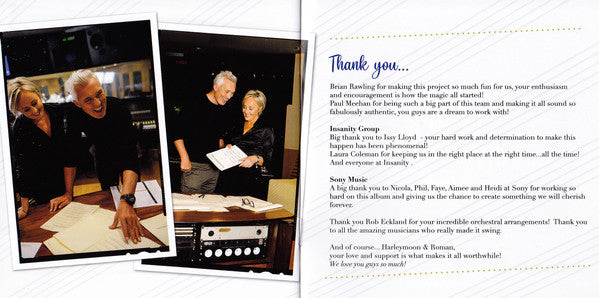 Thank you...
Brian Rawling for making this project so much fun for us, your enthusiasm
and encouragement is how the magic all started!
Paul Meehan for being such a big part of this team and making it all sound so
fabulously authentic, you guys are a dream to work with!
Insanity Group
Big thank you to Issy Lloyd  - your hard work and determination to make this
happen has been phenomenal!
Laura Coleman for keeping us in the right place at the right time...all the time!
And everyone at Insanity .
Sony Music
A big thank you to Nicola, Phil, Faye, Aimee and Heidi at Sony for working so
hard on this album and giving us the chance to create something we will cherish
forever.
Thank you Bob Eckland for your incredible orchestral arrangements!  Thank you
to all the amazing musicians who really made it swing.
And of course... Harleymoon & Roman,
your love and support is what makes it all worthwhile!
We love you guys so much!